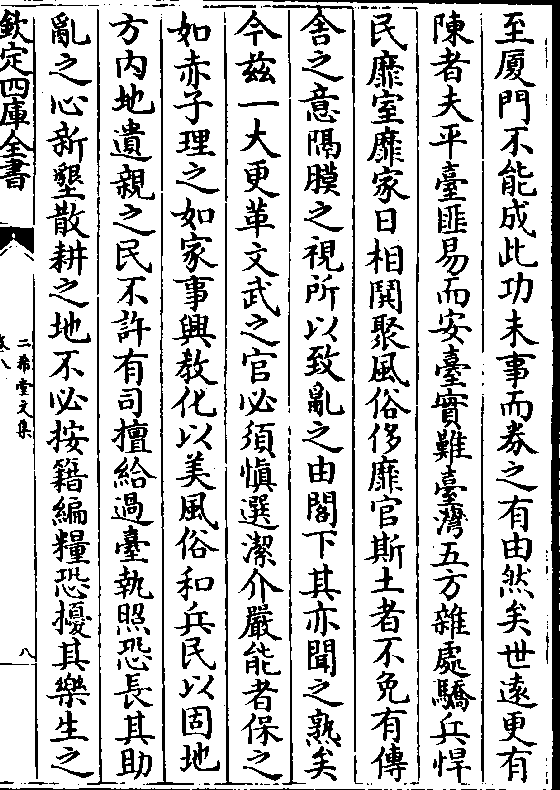 至厦門不能成此功未事而券之有由然矣世遠更有
陳者夫平臺匪易而安臺實難臺灣五方雜處驕兵悍
民靡室靡家日相鬨聚風俗侈靡官斯土者不免有傳
舍之意隔膜之視所以致亂之由閣下其亦聞之熟矣
今兹一大更革文武之官必須慎選潔介嚴能者保之
如赤子理之如家事興教化以美風俗和兵民以固地
方内地遺親之民不許有司擅給過臺執照恐長其助
亂之心新墾散耕之地不必按籍編糧恐擾其樂生之
欽定四庫全書
二希堂文集
卷八
八